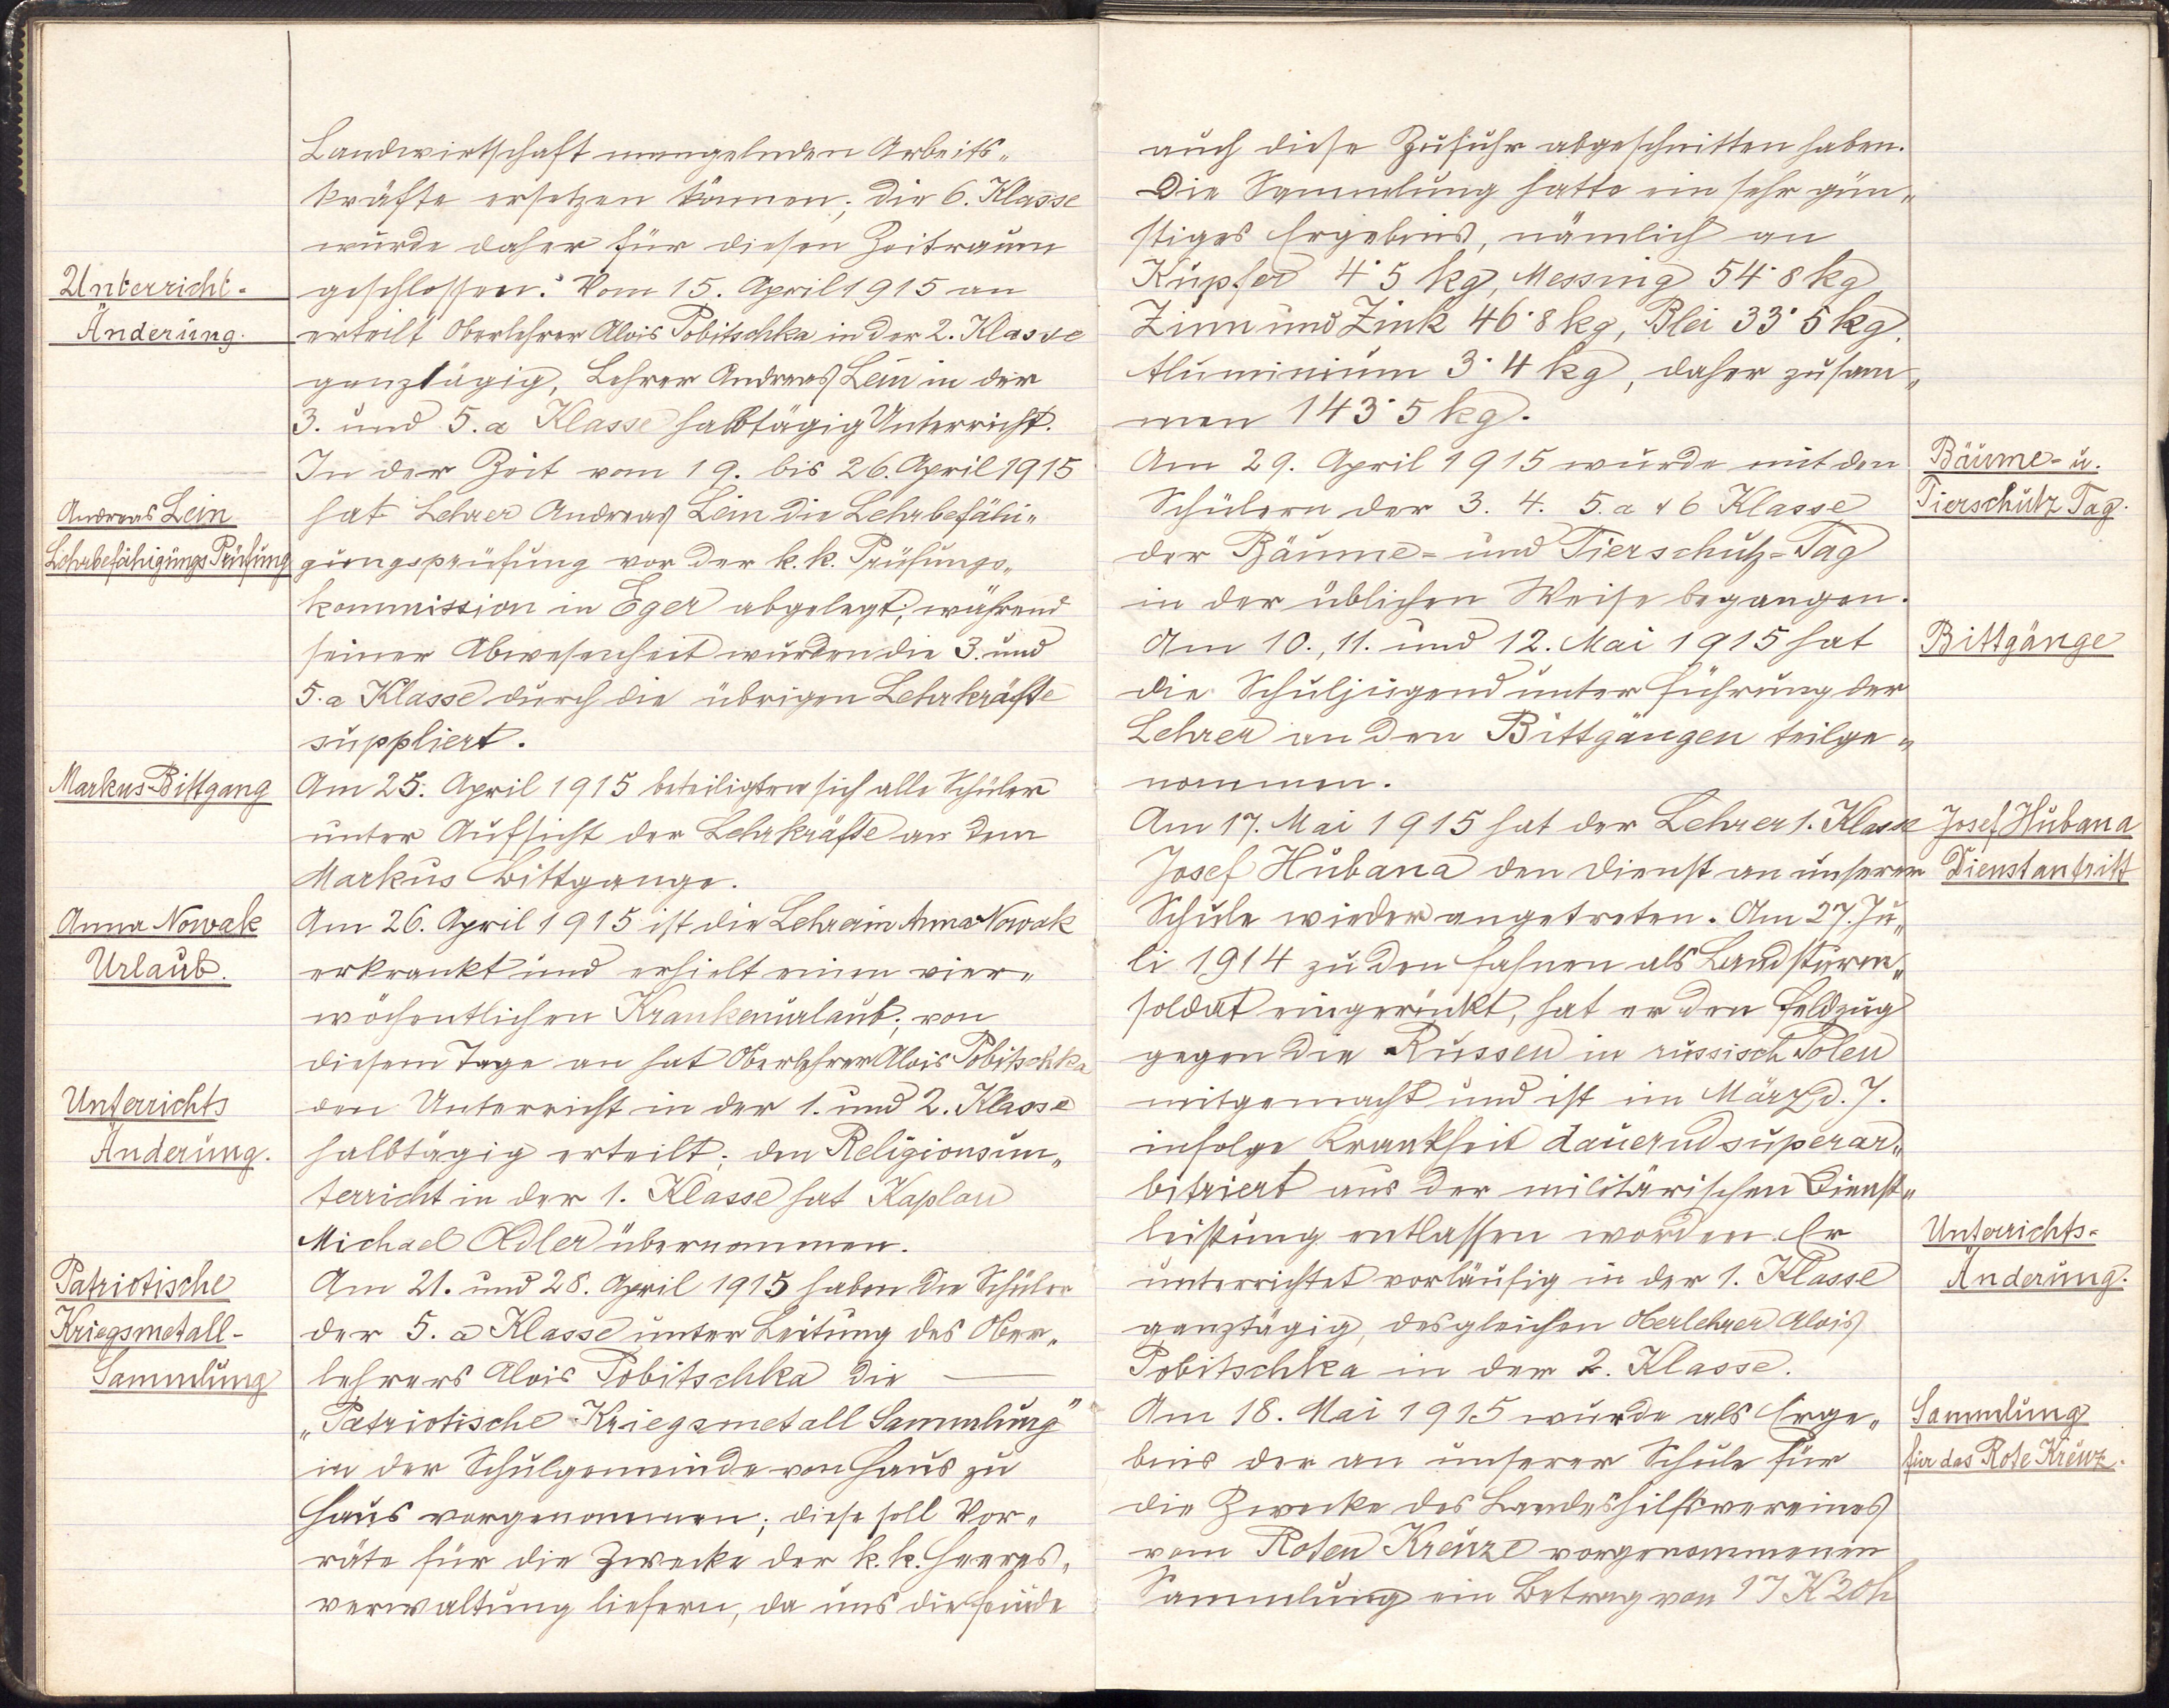 Landwirtschaft mangelnden Arbeits„
kräfte ersetzen können; die 6. Klasse
wurde daher für diesen Zeitraum
Unterricht-
geschlossen. Vom 15. April 1915 an
Änderung.
erteilt Oberlehrer Alois Tobitschka in der 2. Klasse
ganztägig, Lehrer Andreas Lein in der
3. und 5. a Klasse halbtägig Unterricht.
In der Zeit vom 19. bis 26. April 1915
Andreas Lein
hat Lehrer Andreas Lein die Lehrbefähi„
Lehrbefähigungs Prüfung
gungsprüfung vor der k. k. Prüfungs„
kommission in Eger abgelegt; während
seiner Abwesenheit wurden die 3. und
5. a Klasse durch die übrigen Lehrkräfte
suppliert.
Markus-Bittgang
Am 25. April 1915 beteiligten sich alle Schüler
unter Aufsicht der Lehrkräfte an dem
Markus Bittgange.
Anna Nowak
Am 26. April 1915 ist die Lehrerin Anna Nowak
Urlaub.
erkrankt und erhielt einen vier„
wöchentlichen Krankenurlaub; von
diesem Tage an hat Oberlehrer Alois Tobitschka
Unterrichts
den Unterricht in der 1. und 2. Klasse
Änderung.
halbtägig erteilt; den Religionsun„
terricht in der 1. Klasse hat Kaplan
Michael Adler übernommen.
Patriotische
Am 21. und 28. April 1915 haben die Schüler
Kriegsmetall-
der 5. a Klasse unter Leitung des Ober„
Sammlung
lehrers Alois Tobitschka die —
„Patriotische Kriegsmetall Sammlung"
in der Schulgemeinde von Haus zu
Haus vorgenommen; diese soll Vor„
räte für die Zwecke der k. k. Heeres„
verwaltung liefern, da uns die Feinde
auch diese Zufuhr abgeschnitten haben.
Die Sammlung hatte ein sehr gün„
stiges Ergebnis, nämlich an
Kupfer 4˙5 kg, Messing 54˙8 kg,
Zinn und Zink 46˙8 kg, Blei 33˙5 kg,
Aluminium 3˙4 kg, daher zusam„
men 143˙5 kg.
Am 29. April 1915 wurde mit den
Bäume- u.
Schülern der 3. 4. 5. a & 6 Klasse
Tierschutz Tag.
der Bäume- und Tierschutz-Tag
in der üblichen Weise begangen.
Am 10., 11. und 12. Mai 1915 hat
Bittgänge
die Schuljugend unter Führung der
Lehrer an den Bittgängen teilge„
nommen.
Am 17. Mai 1915 hat der Lehrer 1. Klasse
Josef Hubana
Josef Hubana den Dienst an unserer
Dienstantritt
Schule wieder angetreten. Am 27. Ju„
li 1914 zu den Fahnen als Landsturm„
soldat eingerückt, hat er den Feldzug
gegen die Russen in russisch Polen
mitgemacht und ist im März d. J.
infolge Krankheit dauernd superar„
bitriert aus der militärischen Dienst„
leistung entlassen worden. Er
Unterrichts-
unterrichtet vorläufig in der 1. Klasse
Änderung.
ganztägig, desgleichen Oberlehrer Alois
Tobitschka in der 2. Klasse.
Am 18. Mai 1915 wurde als Erge„
Sammlung
bnis der an unserer Schule für
für das Rote Kreuz.
die Zwecke des Landeshilfsvereines
vom Roten Kreuze vorgenommenen
Sammlung ein Betrag von 17 K 20 h